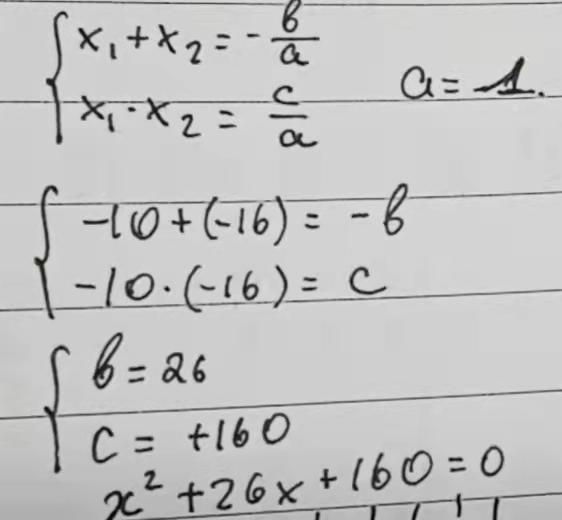 x₁ + x₂ = - b/a
x₁ · x₂ = c/a
a = 1.
-10 + (-16) = - b
-10 · (-16) = c
b = 26
c = +160
x² + 26x + 160 = 0